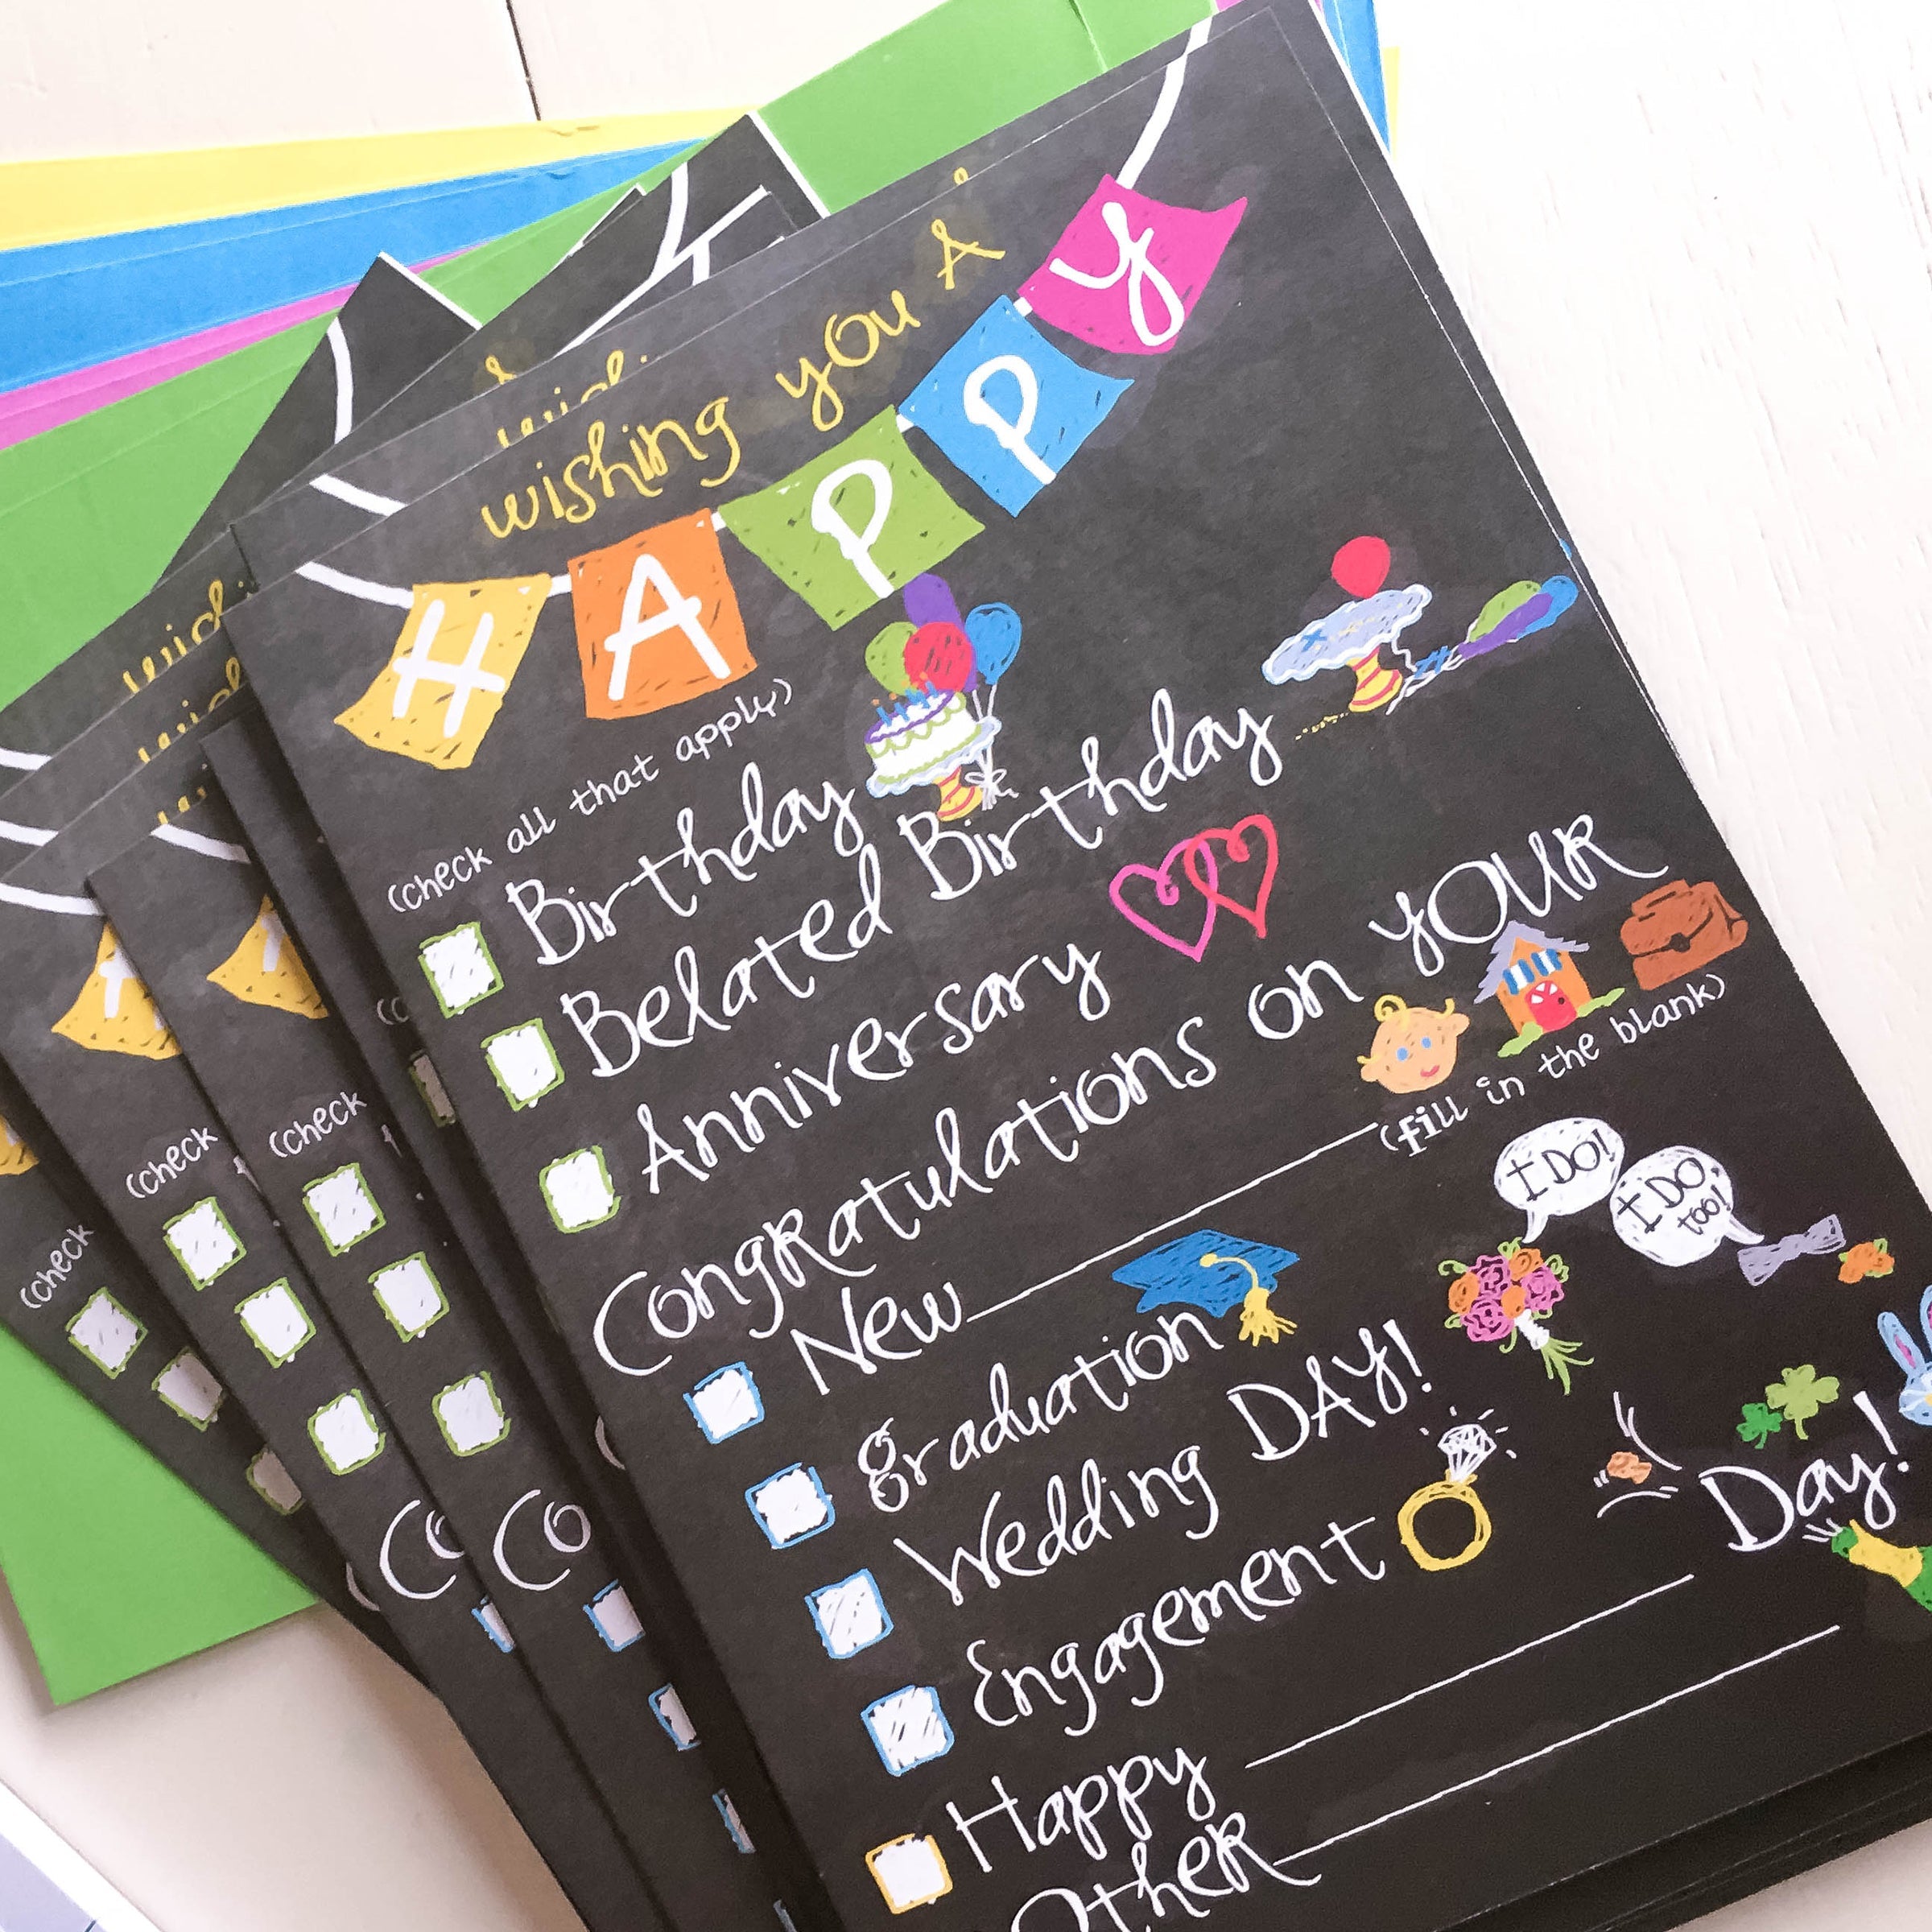 wishing you A
HAPPY
(check all that apply)
Birthday
Belated Birthday
Anniversary
Congratulations on your
New (fill in the blank)
graduation
I DO!
I DO too!
Wedding DAY!
Engagement
Happy Day!
Other
(check
(check
(check
Co
Co